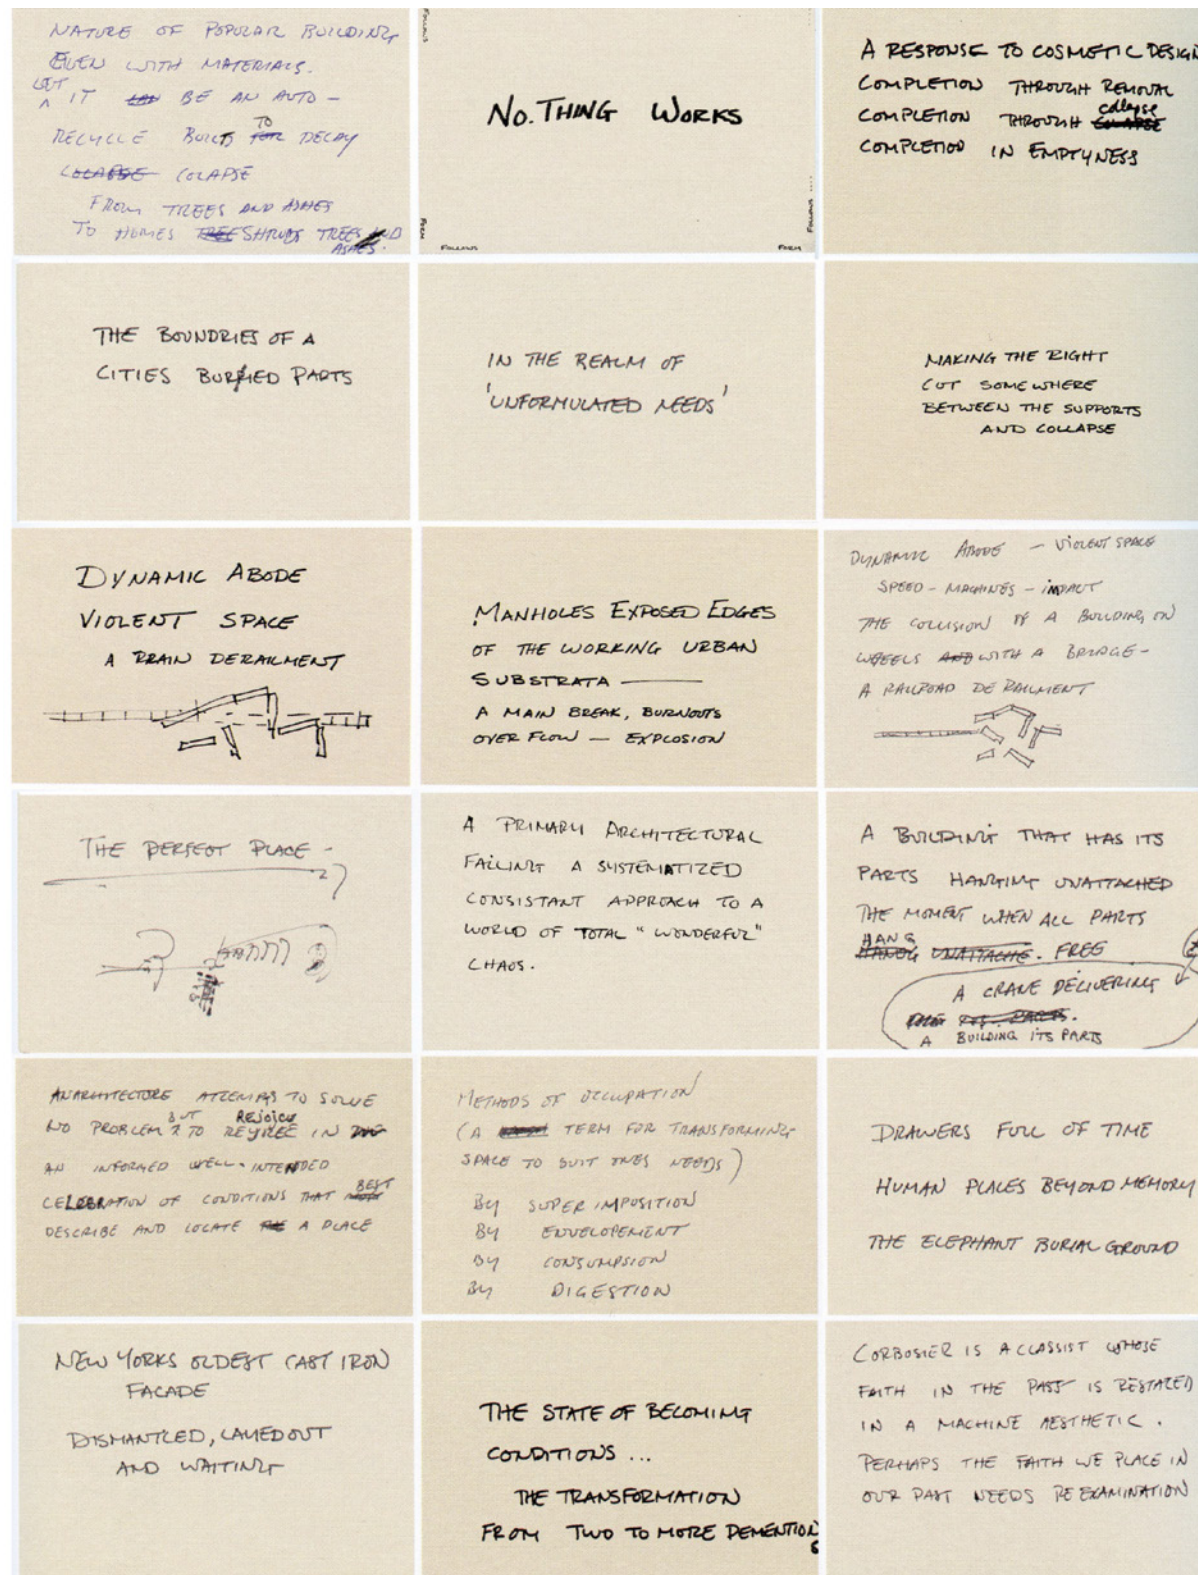 NATURE OF POPULAR BUILDING
EVEN WITH MATERIALS.
BUT IT BE AN AUTO-
RECYCLE BUILTS TO DECAY
COLAPSE
FROM TREES AND ASHES
TO HOMES SHRUBS TREES AND
ASHES.
FOLLOWS
NO.THING WORKS
FORM
FOLLOWS
FORM
FOLLOWS
A RESPONSE TO COSMETIC DESIGN
COMPLETION THROUGH REMOVAL
COMPLETION THROUGH collapse
COMPLETION IN EMPTYNESS
THE BOUNDRIES OF A
CITIES BURIED PARTS
IN THE REALM OF
'UNFORMULATED NEEDS'
MAKING THE RIGHT
CUT SOMEWHERE
BETWEEN THE SUPPORTS
AND COLLAPSE
DYNAMIC ABODE
VIOLENT SPACE
A TRAIN DERAILMENT
MANHOLES EXPOSED EDGES
OF THE WORKING URBAN
SUBSTRATA ———
A MAIN BREAK, BURNOUTS
OVER FLOW — EXPLOSION
DYNAMIC ABODE — VIOLENT SPACE
SPEED - MACHINES - IMPACT
THE COLLISION OF A BUILDING ON
WHEELS WITH A BRIDGE -
A RAILROAD DERAILMENT
THE PERFECT PLACE -
A PRIMARY ARCHITECTURAL
FAILING A SYSTEMATIZED
CONSISTANT APPROACH TO A
WORLD OF TOTAL "WONDERFUL"
CHAOS.
A BUILDING THAT HAS ITS
PARTS HANGING UNATTACHED
THE MOMENT WHEN ALL PARTS
HANG FREE
A CRANE DELIVERING
A BUILDING ITS PARTS
ANARCHITECTURE ATTEMPTS TO SOLVE
NO PROBLEM BUT TO REJOICE IN
AN INFORMED WELL-INTENDED
CELEBRATION OF CONDITIONS THAT BEST
DESCRIBE AND LOCATE A PLACE
METHODS OF OCCUPATION
(A TERM FOR TRANSFORMING
SPACE TO SUIT ONES NEEDS)
BY SUPER IMPOSITION
BY ENVELOPEMENT
BY CONSUMPSION
BY DIGESTION
DRAWERS FULL OF TIME
HUMAN PLACES BEYOND MEMORY
THE ELEPHANT BURIAL GROUND
NEW YORKS OLDEST CAST IRON
FACADE
DISMANTLED, LAYED OUT
AND WAITING
THE STATE OF BECOMING
CONDITIONS ...
THE TRANSFORMATION
FROM TWO TO MORE DEMENTIONS
CORBOSIER IS A CLASSIST WHOSE
FAITH IN THE PAST IS RESTATED
IN A MACHINE AESTHETIC.
PERHAPS THE FAITH WE PLACE IN
OUR PAST NEEDS RE EXAMINATION